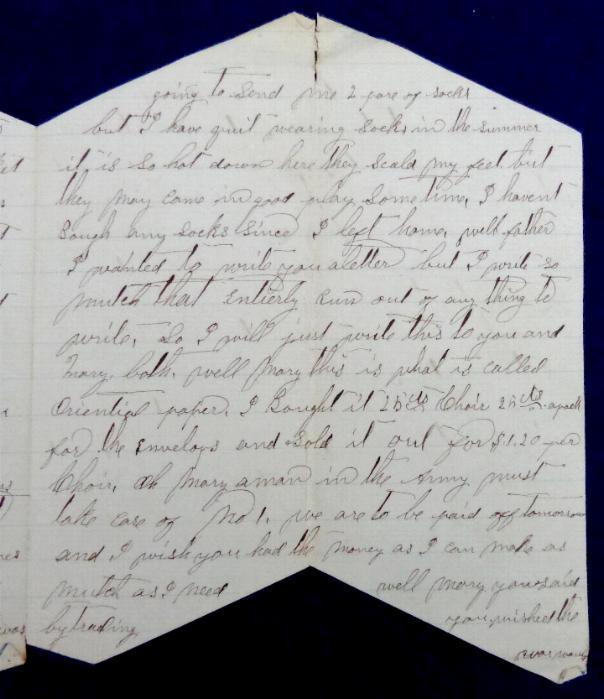 going to send me 2 pare of socks
but I have quit wearing socks in the summer
it is so hot down here they scald my feet but
they may come in good play sometime, I havent
bough any socks since I left home, well father
I wanted to write you a letter but I write so
mutch that entierly run out of any thing to
write, So I will just write this to you and
Mary both, well Mary this is what is called
Oriential paper, I bought it 25cts Choir 25cts apack
for the envelops and sold it out for $1.20 per
Choir, Oh Mary a man in the Army must
take care of No 1, we are to be paid off tomorrow
and I wish you had the money as I can make as
mutch as I need
by trading
well Mary you said
you wished the
war was